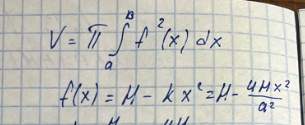 V = π ∫ₐᴮ f²(x) dx
f(x) = H - kx² = H - 4Hx²/a²